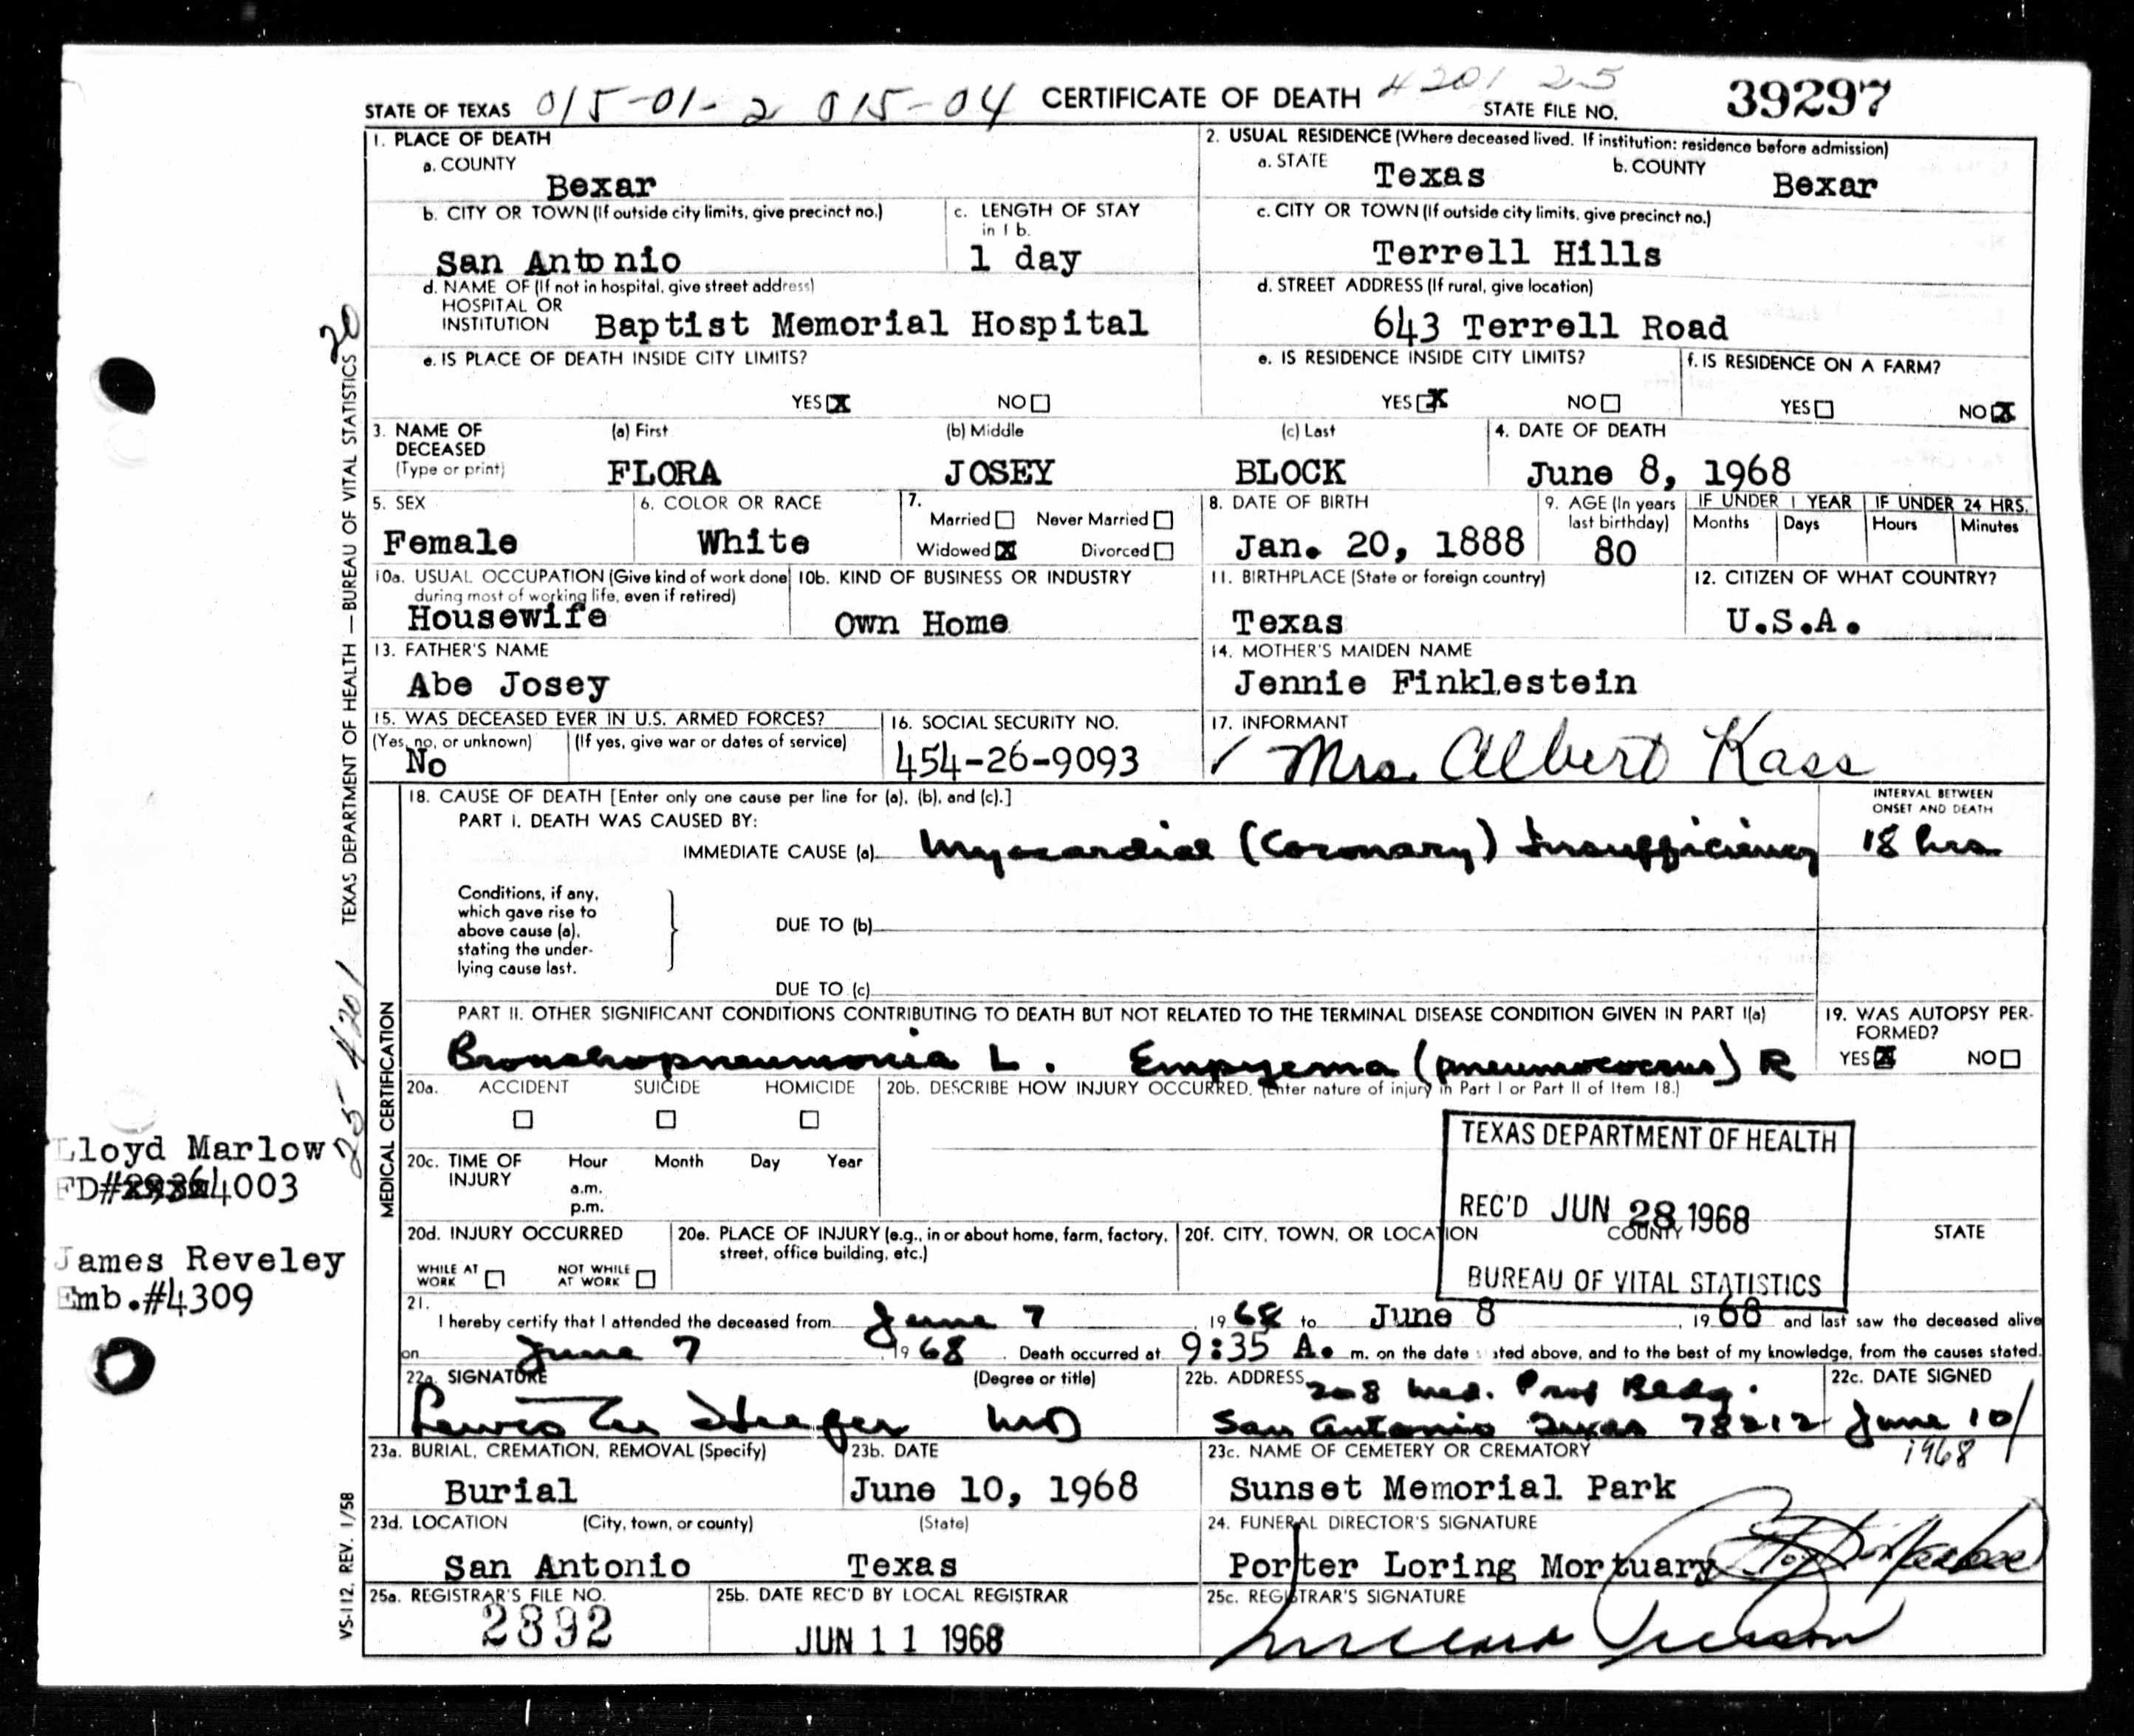 STATE OF TEXAS 015-01-2 015-04 CERTIFICATE OF DEATH 4201 25 STATE FILE NO. 39297
1. PLACE OF DEATH
a. COUNTY
Bexar
2. USUAL RESIDENCE (Where deceased lived. If institution: residence before admission)
a. STATE Texas b. COUNTY Bexar
b. CITY OR TOWN (If outside city limits, give precinct no.)
San Antonio
c. LENGTH OF STAY
in 1 b.
1 day
c. CITY OR TOWN (If outside city limits, give precinct no.)
Terrell Hills
d. NAME OF (If not in hospital, give street address)
HOSPITAL OR
INSTITUTION Baptist Memorial Hospital
d. STREET ADDRESS (If rural, give location)
643 Terrell Road
e. IS PLACE OF DEATH INSIDE CITY LIMITS?
YES X NO
e. IS RESIDENCE INSIDE CITY LIMITS?
YES X NO
f. IS RESIDENCE ON A FARM?
YES NO X
3. NAME OF
DECEASED
(Type or print)
(a) First (b) Middle (c) Last
FLORA JOSEY BLOCK
4. DATE OF DEATH
June 8, 1968
5. SEX
Female
6. COLOR OR RACE
White
7.
Married Never Married
Widowed X Divorced
8. DATE OF BIRTH
Jan. 20, 1888
9. AGE (In years
last birthday)
80
IF UNDER 1 YEAR IF UNDER 24 HRS.
Months Days Hours Minutes
10a. USUAL OCCUPATION (Give kind of work done
during most of working life, even if retired)
Housewife
10b. KIND OF BUSINESS OR INDUSTRY
Own Home
11. BIRTHPLACE (State or foreign country)
Texas
12. CITIZEN OF WHAT COUNTRY?
U.S.A.
13. FATHER'S NAME
Abe Josey
14. MOTHER'S MAIDEN NAME
Jennie Finklestein
15. WAS DECEASED EVER IN U.S. ARMED FORCES?
(Yes, no, or unknown) (If yes, give war or dates of service)
No
16. SOCIAL SECURITY NO.
454-26-9093
17. INFORMANT
Mrs. Albert Kass
18. CAUSE OF DEATH [Enter only one cause per line for (a), (b), and (c).]
INTERVAL BETWEEN
ONSET AND DEATH
PART I. DEATH WAS CAUSED BY:
IMMEDIATE CAUSE (a) Myocardial (Coronary) Insufficiency 18 hrs
Conditions, if any,
which gave rise to
above cause (a),
stating the under-
lying cause last.
DUE TO (b)
DUE TO (c)
PART II. OTHER SIGNIFICANT CONDITIONS CONTRIBUTING TO DEATH BUT NOT RELATED TO THE TERMINAL DISEASE CONDITION GIVEN IN PART I(a)
Bronchopneumonia L. Empyema (pneumococcus) R
19. WAS AUTOPSY PER-
FORMED?
YES X NO
20a. ACCIDENT SUICIDE HOMICIDE
20b. DESCRIBE HOW INJURY OCCURRED. (Enter nature of injury in Part I or Part II of Item 18.)
20c. TIME OF
INJURY
Hour Month Day Year
a.m.
p.m.
TEXAS DEPARTMENT OF HEALTH
REC'D JUN 28 1968
BUREAU OF VITAL STATISTICS
20d. INJURY OCCURRED
WHILE AT
WORK
NOT WHILE
AT WORK
20e. PLACE OF INJURY (e.g., in or about home, farm, factory,
street, office building, etc.)
20f. CITY, TOWN, OR LOCATION COUNTY STATE
21.
I hereby certify that I attended the deceased from June 7, 1968 to June 8, 1968 and last saw the deceased alive
on June 7 1968. Death occurred at 9:35 A. m. on the date stated above, and to the best of my knowledge, from the causes stated.
22a. SIGNATURE (Degree or title)
MD
22b. ADDRESS 208 Med. Prof Bldg.
San Antonio Texas 78212
22c. DATE SIGNED
June 10/
1968
23a. BURIAL, CREMATION, REMOVAL (Specify)
Burial
23b. DATE
June 10, 1968
23c. NAME OF CEMETERY OR CREMATORY
Sunset Memorial Park
23d. LOCATION (City, town, or county) (State)
San Antonio Texas
24. FUNERAL DIRECTOR'S SIGNATURE
Porter Loring Mortuary
25a. REGISTRAR'S FILE NO.
2392
25b. DATE REC'D BY LOCAL REGISTRAR
JUN 11 1968
25c. REGISTRAR'S SIGNATURE
TEXAS DEPARTMENT OF HEALTH — BUREAU OF VITAL STATISTICS 20
25 4201
MEDICAL CERTIFICATION
VS-112. REV. 1/58
Lloyd Marlow
FD# 4003
James Reveley
Emb.#4309